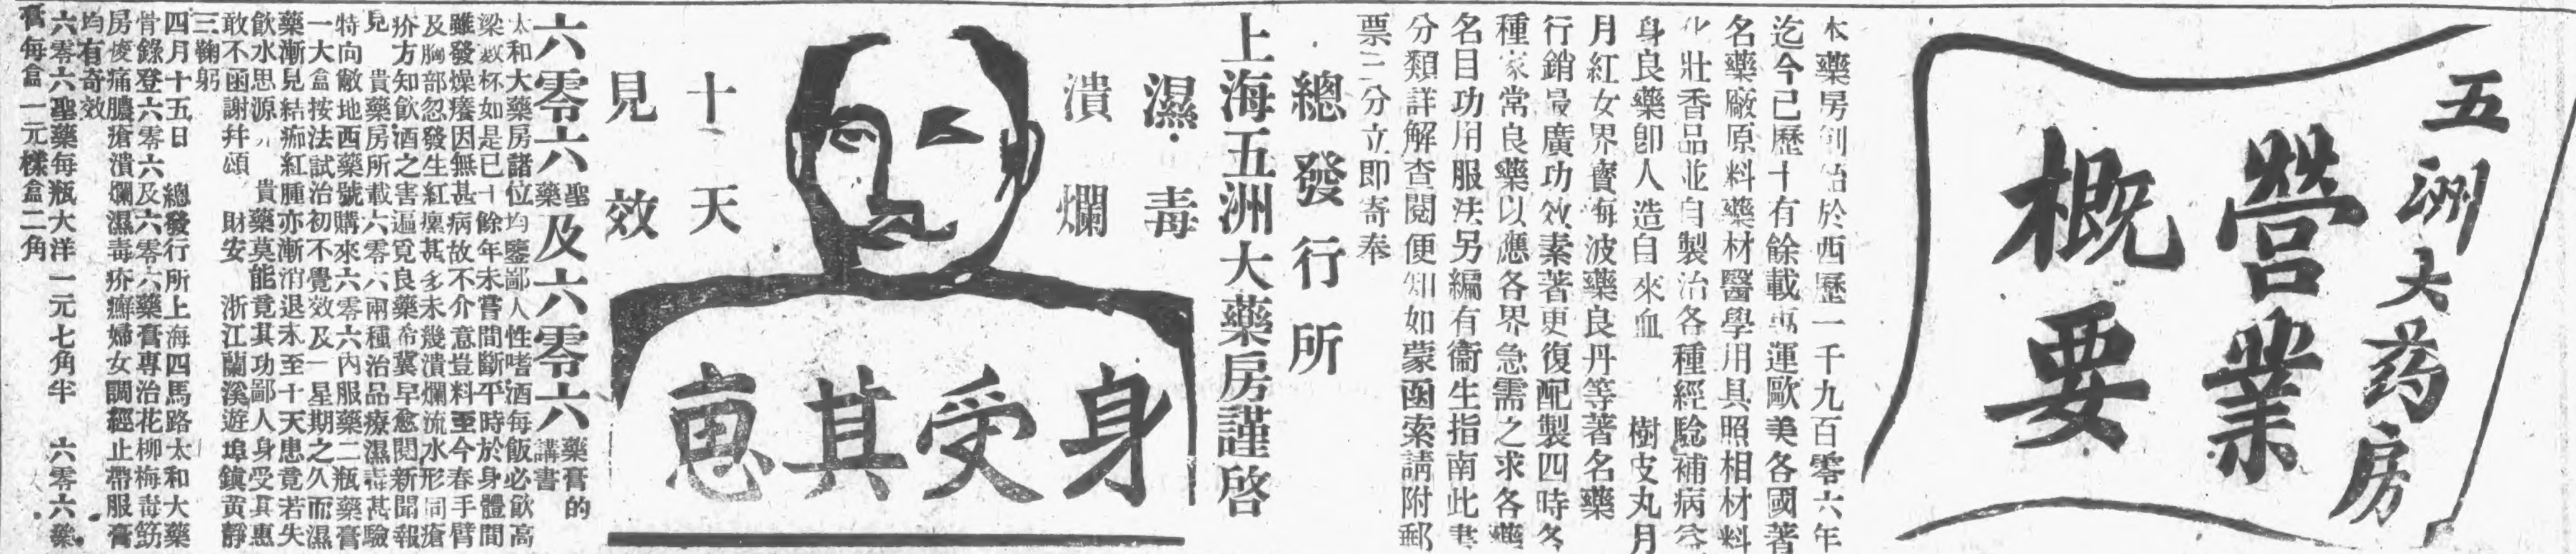 五洲大药房
營業
概要
本藥房創始於西歷一千九百零六年
迄今已歷十有餘載專運歐美各國著
名藥廠原料藥材醫學用具照相材料
化壯香品並自製治各種經驗補病益
身良藥卽人造自來血 樹皮丸月
月紅女界寶海波藥良丹等著名藥
行銷最廣功效素著更復配製四時各
種家常良藥以應各界急需之求各藥
名目功用服法另編有衞生指南此書
分類詳解查閱便知如蒙函索請附郵
票二分立即寄奉
總發行所
上海五洲大藥房謹啓
濕毒
潰爛
十天
見效
身受其惠
六零六聖藥及六零六藥膏的講書
太和大藥房諸位均鑒鄙人性嗜酒每飯必飲高
梁數杯如是已十餘年未嘗間斷平時於身體間
雖發燥癢因無甚病故不介意豈料至今春手臂
及胸部忽發生紅瘰甚多未幾潰爛流水形同瘡
疥方知飲酒之害遍覓良藥希冀早愈閱新聞報
見 貴藥房所載六零六兩種治品療濕毒甚驗
特向敝地西藥號購來六零六內服藥二瓶藥膏
一大盒按法試治初不覺效及一星期之久而濕
藥漸見結痂紅腫亦漸消退未至十天患竟若失
飲水思源 貴藥莫能竟其功鄙人身受其惠
敢不函謝幷頌 財安 浙江蘭溪遊埠鎭黃靜
三鞠躬
四月十五日 總發行所上海四馬路太和大藥
骨錄登六零六及六零六藥膏專治花柳梅毒筋
房痠痛膿瘡潰爛濕毒疥癬婦女調經止帶服膏
均有奇效
六零六聖藥每瓶大洋一元七角半 六零六藥
膏每盒一元樣盒二角